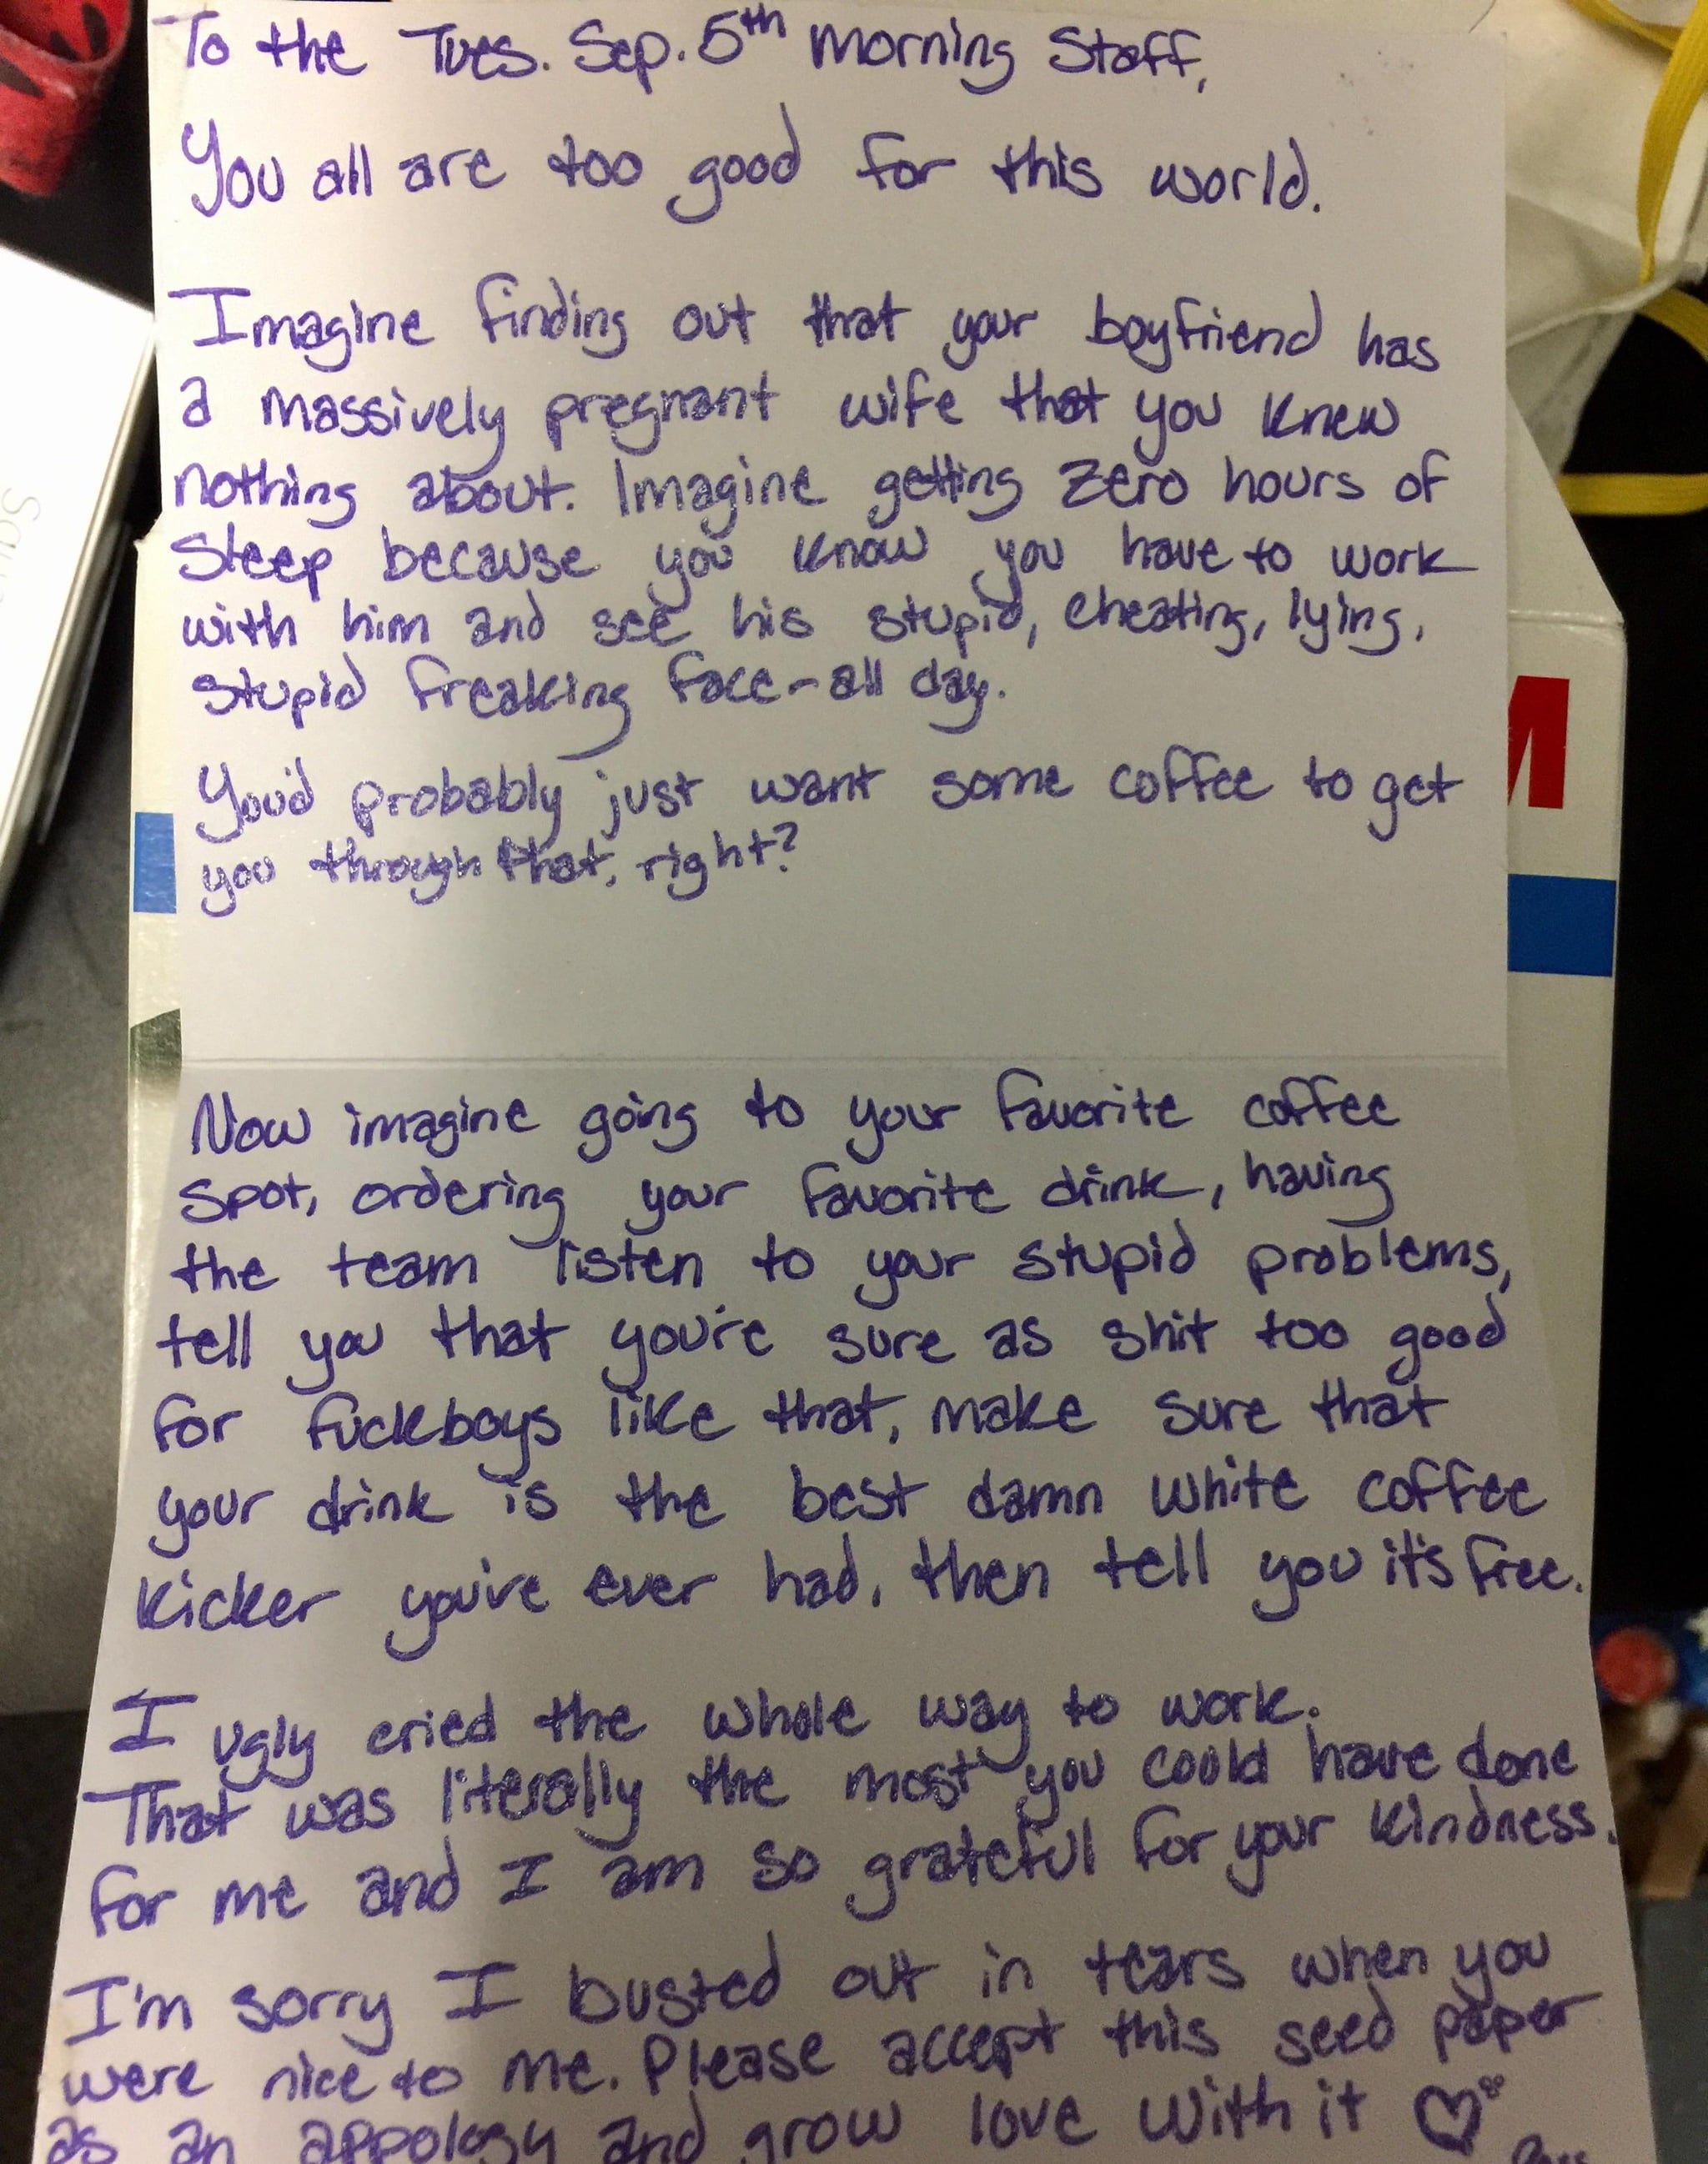 To the Tues. Sep. 5th morning Staff,
You all are too good for this world.
Imagine finding out that your boyfriend has
a massively pregnant wife that you knew
nothing about. Imagine getting zero hours of
sleep because you know you have to work
with him and see his stupid, cheating, lying,
stupid freaking face-all day.
You'd probably just want some coffee to get
you through that, right?
Now imagine going to your favorite coffee
spot, ordering your favorite drink, having
the team listen to your stupid problems,
tell you that you're sure as shit too good
for fuckboys like that, make sure that
your drink is the best damn white coffee
kicker you've ever had, then tell you it's free.
I ugly cried the whole way to work.
That was literally the most you could have done
for me and I am so grateful for your kindness.
I'm sorry I busted out in tears when you
were nice to me. Please accept this seed paper
as an appology and grow love with it
M